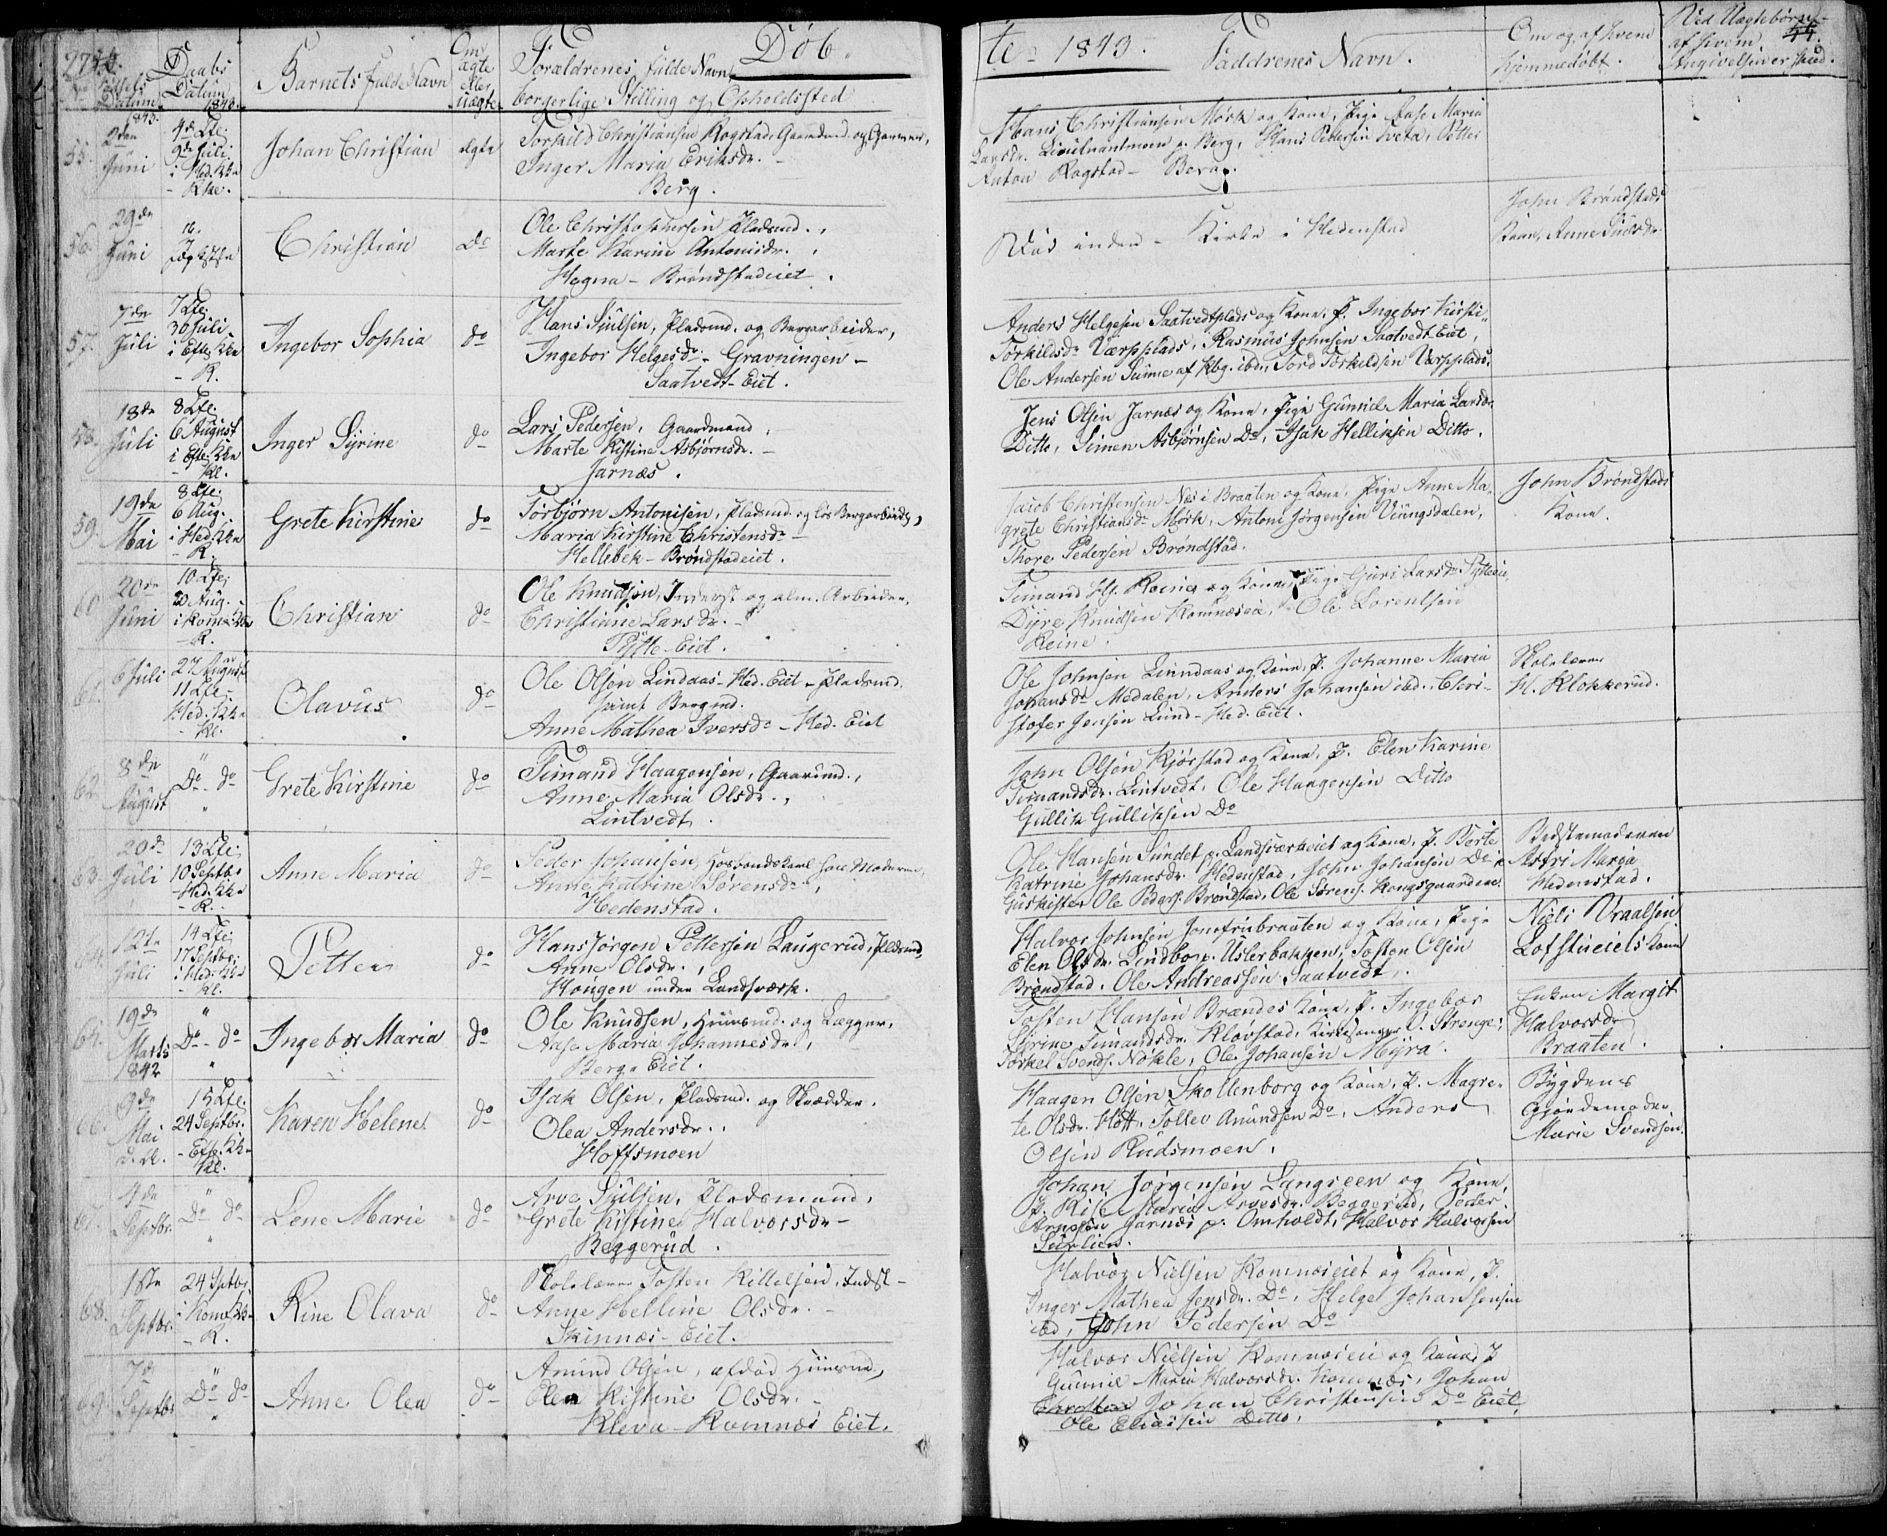 Døb
te 1843.
44.
Fødsels Datum
Daabs Datum 1843.
Barnets fulde Navn
Om ægte eller uægte
Forældrenes fulde Navn, borgerlige Stilling og Opholdssted
Faddrenes Navn.
Om og af hvem hjemmedøbt.
Ved Uægtebørn, af hvem Angivelsen er skeed.
55.
Juni
i Hed. Kke
Johan Christian
ægte
Torkild Christiansen Rogstad, Gaardmd. og
Inger Maria Eriksdr.
Berg.
Hans Christiansen Mørk og Kone, Pige Aase Maria
Larsdr. Lieutnantmoen p. Berg, Hans Pedersen Tveta, Petter
Anton Rogstad - Berg.
56.
29de
Juni
Christian
Do
Ole Christophersen Pladsmd.,
Marte Karine Antonisdr.,
Hegna - Brøndstadeiet.
Kirke i Hedenstad
John Brøndstads
Kone, Anne
57.
7de
Juli
7 Tte.
30 Juli
i Efte. Kke
- K.
Ingebor Sophia
do
Hans Siulsen, Pladsmd. og Bergarbeider,
Ingebor Helgesdr. - Gravningen -
Saatvedt-Eiet.
Anders Helgesen Saatvedtplads og Kone, P. Ingebor Kirsti-
Torkildsdr. Værpplads, Rasmus Johnsen Saatvedt Eiet,
Ole Andersen Suime af Kbg. ibd., Tord Torkildsen Værpplads.
58.
18de
Juli
8 Tte.
6 August
i Efte. Kke
- Kl.
Inger Syrine
do
Lars Pedersen, Gaardmand,
Marte Kistine Asbjørnsdr. -
Jarnæs.
Jens Olsen Jarnæs og Kone, Pige Gunnil Maria Larsdr.
Ditto, Simen Asbjørnsen Do, Isak Helliksen Ditto.
59.
19de
Mai
8 Tte.
6 Aug.
i Hed. Kke
- K.
Grete Kirstine
do
Torbjørn Antonisen, Pladsmd. og Løs Bergarbeider,
Maria Kirstine Christensdr. -
Hellebek - Brøndstadeiet.
Jacob Christensen Næs i Braaten og Kone, Pige Anne Ma-
grete Christiansdr. Mørk, Anton Jørgensen Viungsdalen,
Thore Pedersen Brøndstad.
John Brøndstads
Kone.
60.
20de
Juni
10 Tte.
20 Aug.
i Kom. Kke
- K.
Christian
do
Ole Knudsen, Inderst og alm. Arbeider,
Christiane Larsdr. -
Pytte-Eiet.
Guri Larsdr. Pytteeie,
Dyre Knudsen Komnæseie, Ole Lorentsen
Reine.
61.
6 Juli
27 August
11 Tte.
Hed. Kke
- Kl.
Olavus
do
Ole Olsen Lindaas - Hed. Eiet - Pladsmd.
samt Bergmd.
Anne Mathea Iversdr. - Hed. Eiet
Ole Johnsen Lindaas og Kone, P. Johanne Maria
Johansdr. Medalen, Anders Johansen ibd. Chri-
stofer Jensen Lund - Hed. Eiet.
Skolelærer
H. Klokkerud.
62
8de
August
"
Do do
"
Grete Kirstine
do
Simand Haagensen, Gaardmd.,
Anne Maria Olsdr.,
Lintvedt.
John Olsen Kjørstad og Kone, P. Elen Karine
Simandsdr. Lintvedt. Ole Haagensen Ditto
Gullik Gulliksen Do
63.
20de
Juli
13 Tte.
10 Septbr.
Hed. Kke
- K.
Anne Maria
do
Peder Johansen, Huusbondskarl hos Moderen,
Anne Katrine Sørensdr.,
Hedenstad.
Ole Hansen Sundet p. Landsværkeiet og Kone, P. Berte
Katrine Johansdr. Hedenstad, John Johansen Do
Ole Peders. Brøndstad, Ole Sørens. Kongsgaardene.
Bedstemoderen
Astri Maria
Hedenstad.
64.
12te
Juli
14 Tte.
17 Septbr.
i Hed. Kke
- Kl.
Petter
do
Hans Jørgen Pettersen Laugerud, Pladsmd.
Anne Olsdr.,
Hougen under Landsværk.
Halvor Johnsen Jonsrudbraaten og Kone, Pige
Elen Olsdr. Lindbo p. Uslerbakken, Tosten Olsen
Brøndstad, Ole Andreassen Saatvedt.
Niels Vraalsen
Lofstueiets Kone
64.
19de
Marts
1842
"
Do do
"
Ingebor Maria
do
Ole Knudsen, Huusmd. og Lægger,
Aase Maria Johannesdr.,
Berg Eiet.
Tosten Hansen Brændes Kone, P. Ingebor
Syrine Simandsdr. Kløvstad, Kirkesanger O. Strenge,
Torkel Svends. Nøkle, Ole Johansen Myra.
Enken Margit
Halvorsdr.
Braaten.
66.
9de
Mai
15 Tte.
24 Septbr.
- Efte. Kke
Kl.
Karen Helene
do
Isak Olsen, Pladsmd. og Skrædder.
Olea Andersdr.
Hoffsmoen
Haagen Olsen Skollenborg og Kone, P. Magre-
te Olsdr. Hott, Tollev Amundsen Do, Anders
Olsen Rudsmoen.
Bygdens
Gjordemoder
Marie Svendsen.
67.
4de
Septbr.
"
Do do
"
Lene Marie
do
Arve Siulsen, Pladsmand,
Grete Kistine Halvorsdr. -
Beggerud.
Johan Jørgensen Langseen og Kone,
P. Maria Arvesdr. Beggerud, Peder
Arnesen Jarnæs p. Omholdt, Halvor Halvorsen
68.
1ste
Septbr.
24 Septbr.
i Komn. Kke
- K.
Rine Olava
do
Skolelærer Tosten Kittelsen, Indst -
Anne Helline Olsdr. -
Skinnæs - Eiet.
Halvor Nielsen Komnæseiet og Kone, P.
Inger Mathea Jensdr. Do, Helge Johannesen
ibd, John Pedersen Do
69.
7de
Septbr
"
Do do
"
Anne Olea
do
Amund Olsen, afdød Huusmd.,
Elen Kistine Olsdr. -
Kleva - Komnæs Eiet.
Halvor Nielsen Komnæseiet og Kone, P
Gunnil Maria Halvorsdr. Komnæs, Johan
Johan Christensen Do Eiet,
Ole Eliassen Ditto.